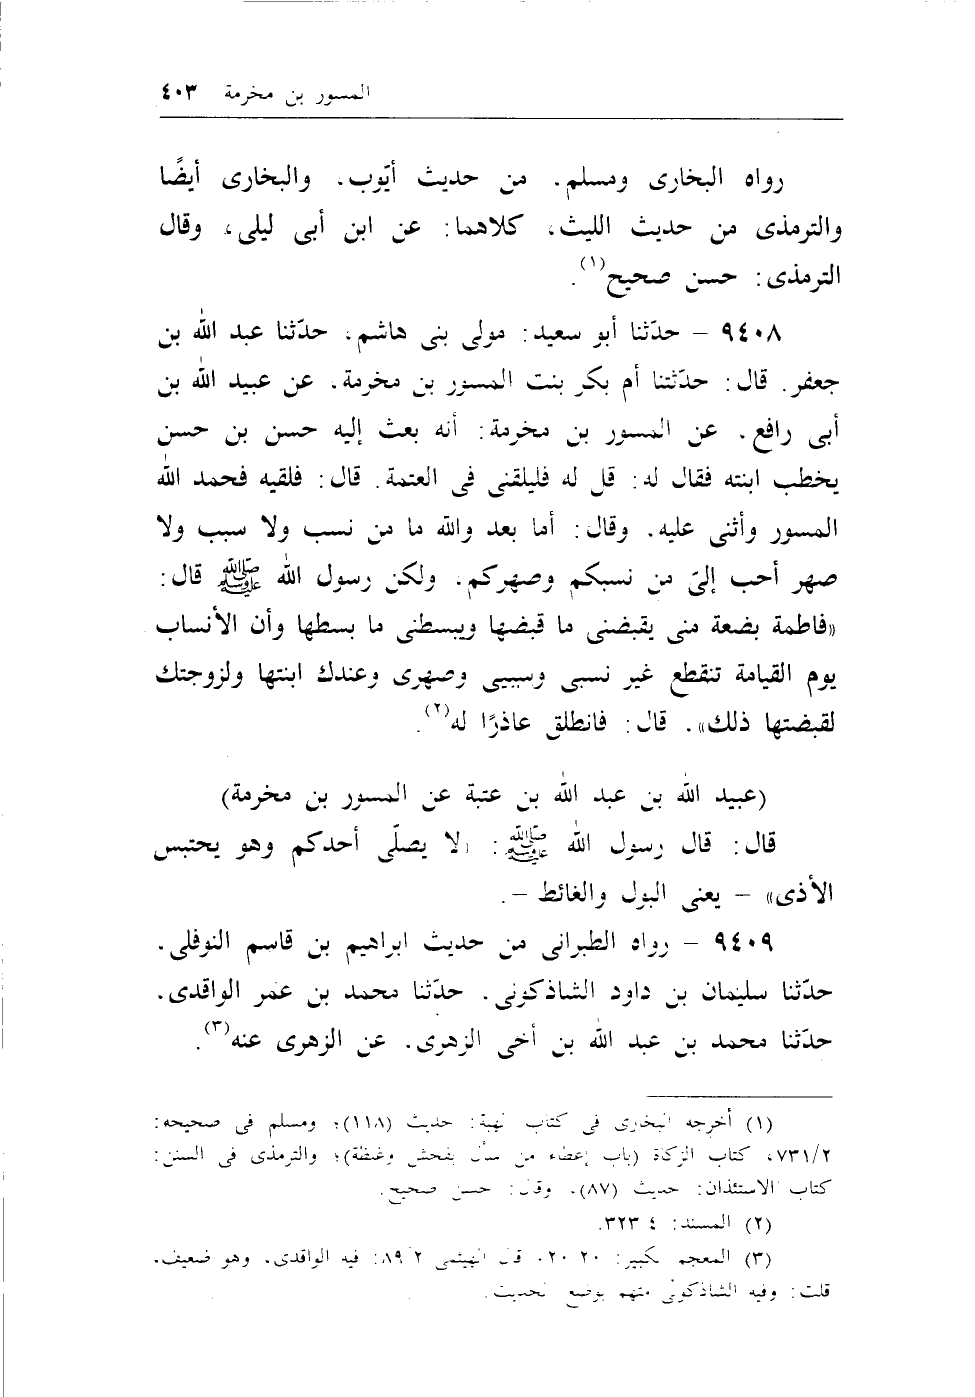 المسور بن مخرمة ٤٠٣
رواه البخارى ومسلم. من حديث أيّوب. والبخارى أيضًا
والترمذى من حديث الليث، كلاهما: عن ابن أبى ليلى، وقال
الترمذى: حسن صحيح(١).
٩٤٠٨ – حدّثنا أبو سعيد: مولى بنى هاشم، حدّثنا عبد الله بن
جعفر. قال: حدّثتنا أم بكر بنت المسور بن مخرمة، عن عبيد الله بن
أبى رافع. عن المسور بن مخرمة: أنه بعث إليه حسن بن حسن
يخطب ابنته فقال له: قل له فليلقنى فى العتمة. قال: فلقيه فحمد الله
المسور وأثنى عليه. وقال: أما بعد والله ما من نسب ولا سبب ولا
صهر أحب إلىّ من نسبكم وصهركم. ولكن رسول الله ﷺ قال:
«فاطمة بضعة منى يقبضنى ما قبضها ويبسطنى ما بسطها وأن الأنساب
يوم القيامة تنقطع غير نسبى وسببى وصهرى وعندك ابنتها ولزوجتك
لقبضتها ذلك». قال: فانطلق عاذرًا له(٢).
(عبيد الله بن عبد الله بن عتبة عن المسور بن مخرمة)
قال: قال رسول الله ﷺ: «لا يصلّى أحدكم وهو يحتبس
الأذى» – يعنى البول والغائط –.
٩٤٠٩ – رواه الطبرانى من حديث ابراهيم بن قاسم النوفلى.
حدّثنا سليمان بن داود الشاذكونى. حدّثنا محمد بن عمر الواقدى.
حدّثنا محمد بن عبد الله بن أخى الزهرى. عن الزهرى عنه(٣).
(١) أخرجه البخارى فى كتاب الهبة: حديث (١١٨)؛ ومسلم فى صحيحه:
٧٣١/٢، كتاب الزكاة (باب إعطاء من سأل بفحش وغلظة)؛ والترمذى فى السنن:
كتاب الاستئذان: حديث (٨٧). وقال: حسن صحيح.
(٢) المسند: ٤ ٣٢٣.
(٣) المعجم الكبير: ٢٠ ٢٠. قال الهيثمى ٢ ٨٩: فيه الواقدى. وهو ضعيف.
قلت: وفيه الشاذكونى متهم بوضع الحديث.